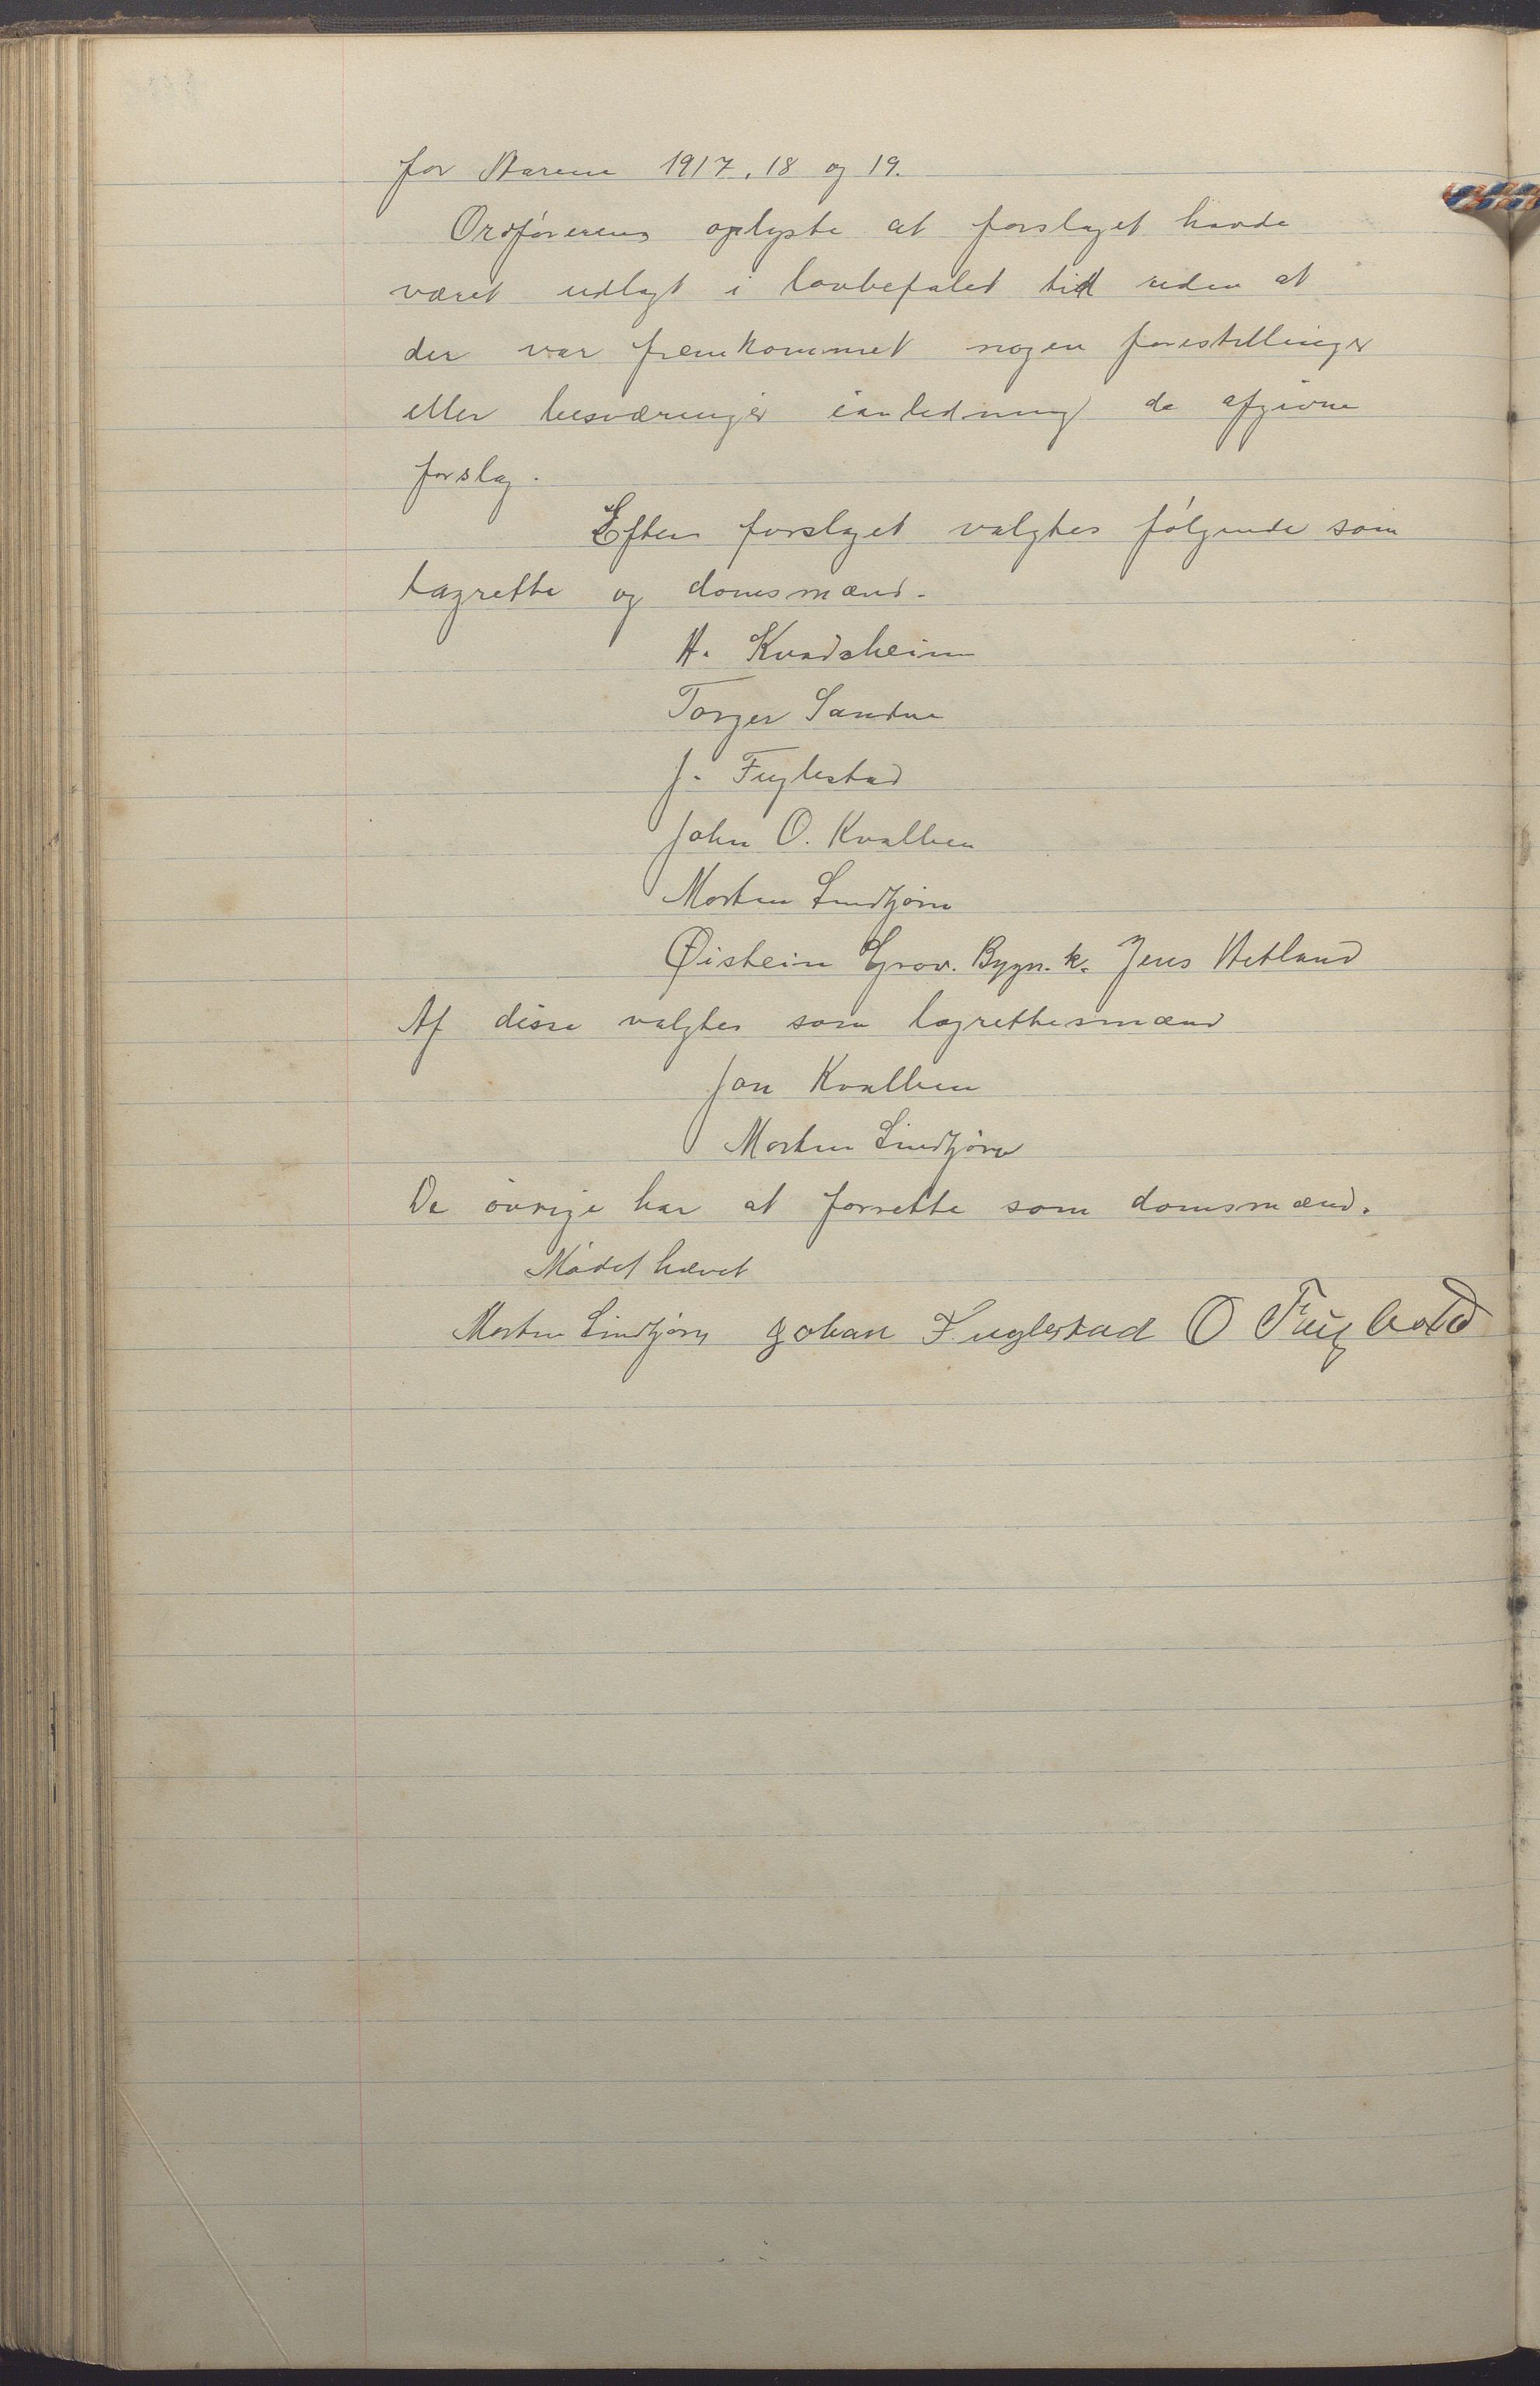 for Aarene 1917, 18 og 19.
Ordføreren oplyste at forslaget havde
været udlagt i lovbefalet tid uden at
der var fremkommet nogen forestillinger
eller besværinger ianledning de afgivne
forslag.
Efter forslaget valgtes følgende som
lagrette og domsmænd.
A. Kvadsheim
Torger Sandve
J. Fuglestad
John O. Kvalben
Morten Lindtjørn
Øistein Grov. Bygn. k. Jens Aetland
Af disse valgtes som lagrettesmænd
Jon Kvalben
Morten Lindtjørn
De øvrige har at forrette som domsmænd.
Mødet hævet
Morten Lindtjørn Johan Fuglestad O Fuglestad